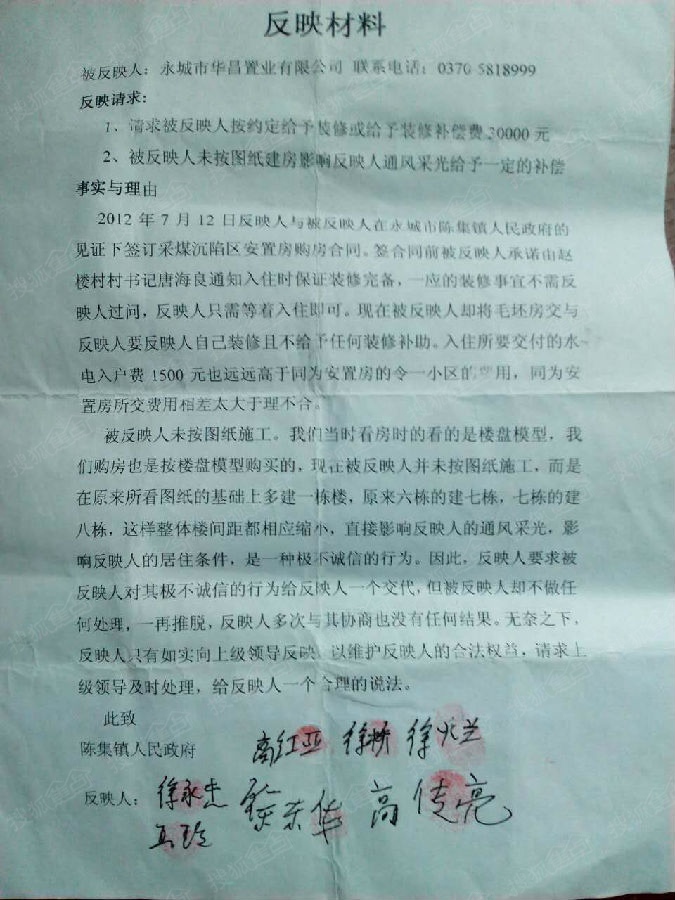 反映材料
被反映人：永城市华昌置业有限公司 联系电话：0370 5818999
反映请求:
1、请求被反映人按约定给予装修或给予装修补偿费30000元
2、被反映人未按图纸建房影响反映人通风采光给予一定的补偿
事实与理由
2012年7月12日反映人与被反映人在永城市陈集镇人民政府的
见证下签订采煤沉陷区安置房购房合同。签合同前被反映人承诺由赵
楼村村书记唐海良通知入住时保证装修完备，一应的装修事宜不需反
映人过问，反映人只需等着入住即可。现在被反映人却将毛坯房交与
反映人要反映人自己装修且不给予任何装修补助。入住所要交付的水
电入户费1500元也远远高于同为安置房的令一小区的费用，同为安
置房所交费用相差太大于理不合。
被反映人未按图纸施工。我们当时看房时的看的是楼盘模型，我
们购房也是按楼盘模型购买的，现在被反映人并未按图纸施工，而是
在原来所看图纸的基础上多建一栋楼，原来六栋的建七栋，七栋的建
八栋，这样整体楼间距都相应缩小，直接影响反映人的通风采光，影
响反映人的居住条件，是一种极不诚信的行为。因此，反映人要求被
反映人对其极不诚信的行为给反映人一个交代，但被反映人却不做任
何处理，一再推脱，反映人多次与其协商也没有任何结果。无奈之下，
反映人只有如实向上级领导反映，以维护反映人的合法权益，请求上
级领导及时处理，给反映人一个合理的说法。
此致
陈集镇人民政府
高红亚 徐 徐 兰
反映人： 徐永杰 徐东华 高传亮